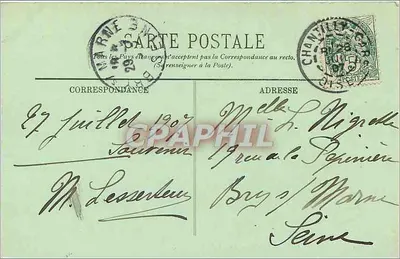 CARTE POSTALE
Tous les Pays étrangers n'acceptent pas la Correspondance au recto.
(Se renseigner à la Poste).
CORRESPONDANCE
ADRESSE
27 Juillet 1907
Souvenir
M. Lesserteur
Melle L. Nigrette
9 rue de la Pépinière
Bry s/ Marne
Seine
CHANTILLY - GARE
MARNE
CPAPHIL